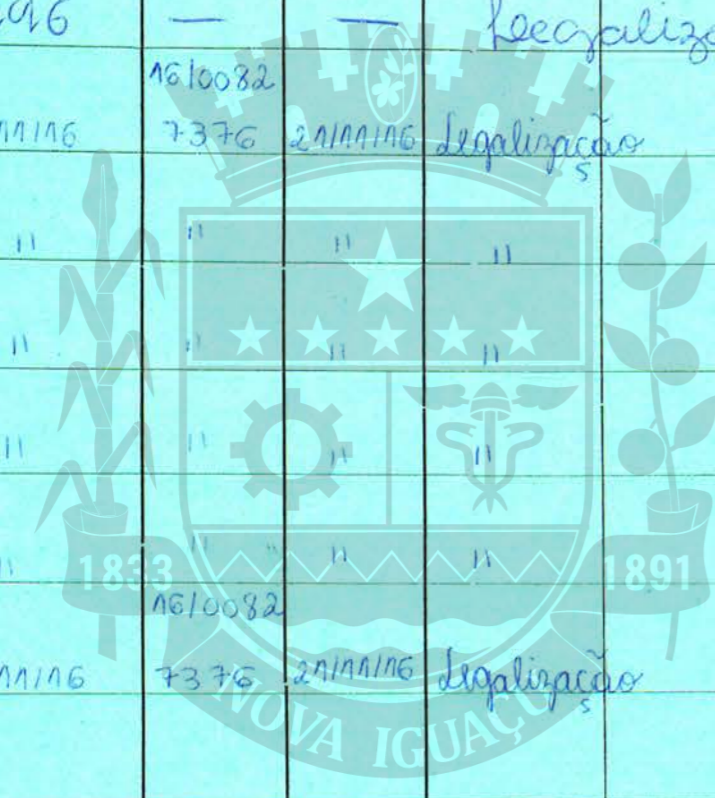 96 — — Legaliza
16/0082
11/16 7376 21/11/16 Legalização
" " " "
" " " "
" " " "
" " " "
16/0082
11/16 7376 21/11/16 Legalização
1833 1891
NOVA IGUAÇU